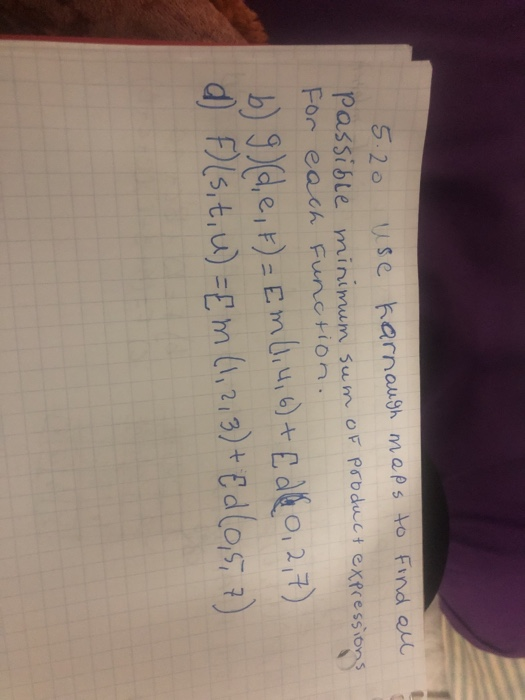 5.20 use karnaugh maps to find all
passible minimum sum of product expressions
For each Function.
b) g)(d,e,F) = Σ m(1,4,6) + Σ d(0,2,7)
d) F)(s,t,u) = Σ m(1,2,3) + Σ d(0,5,7)